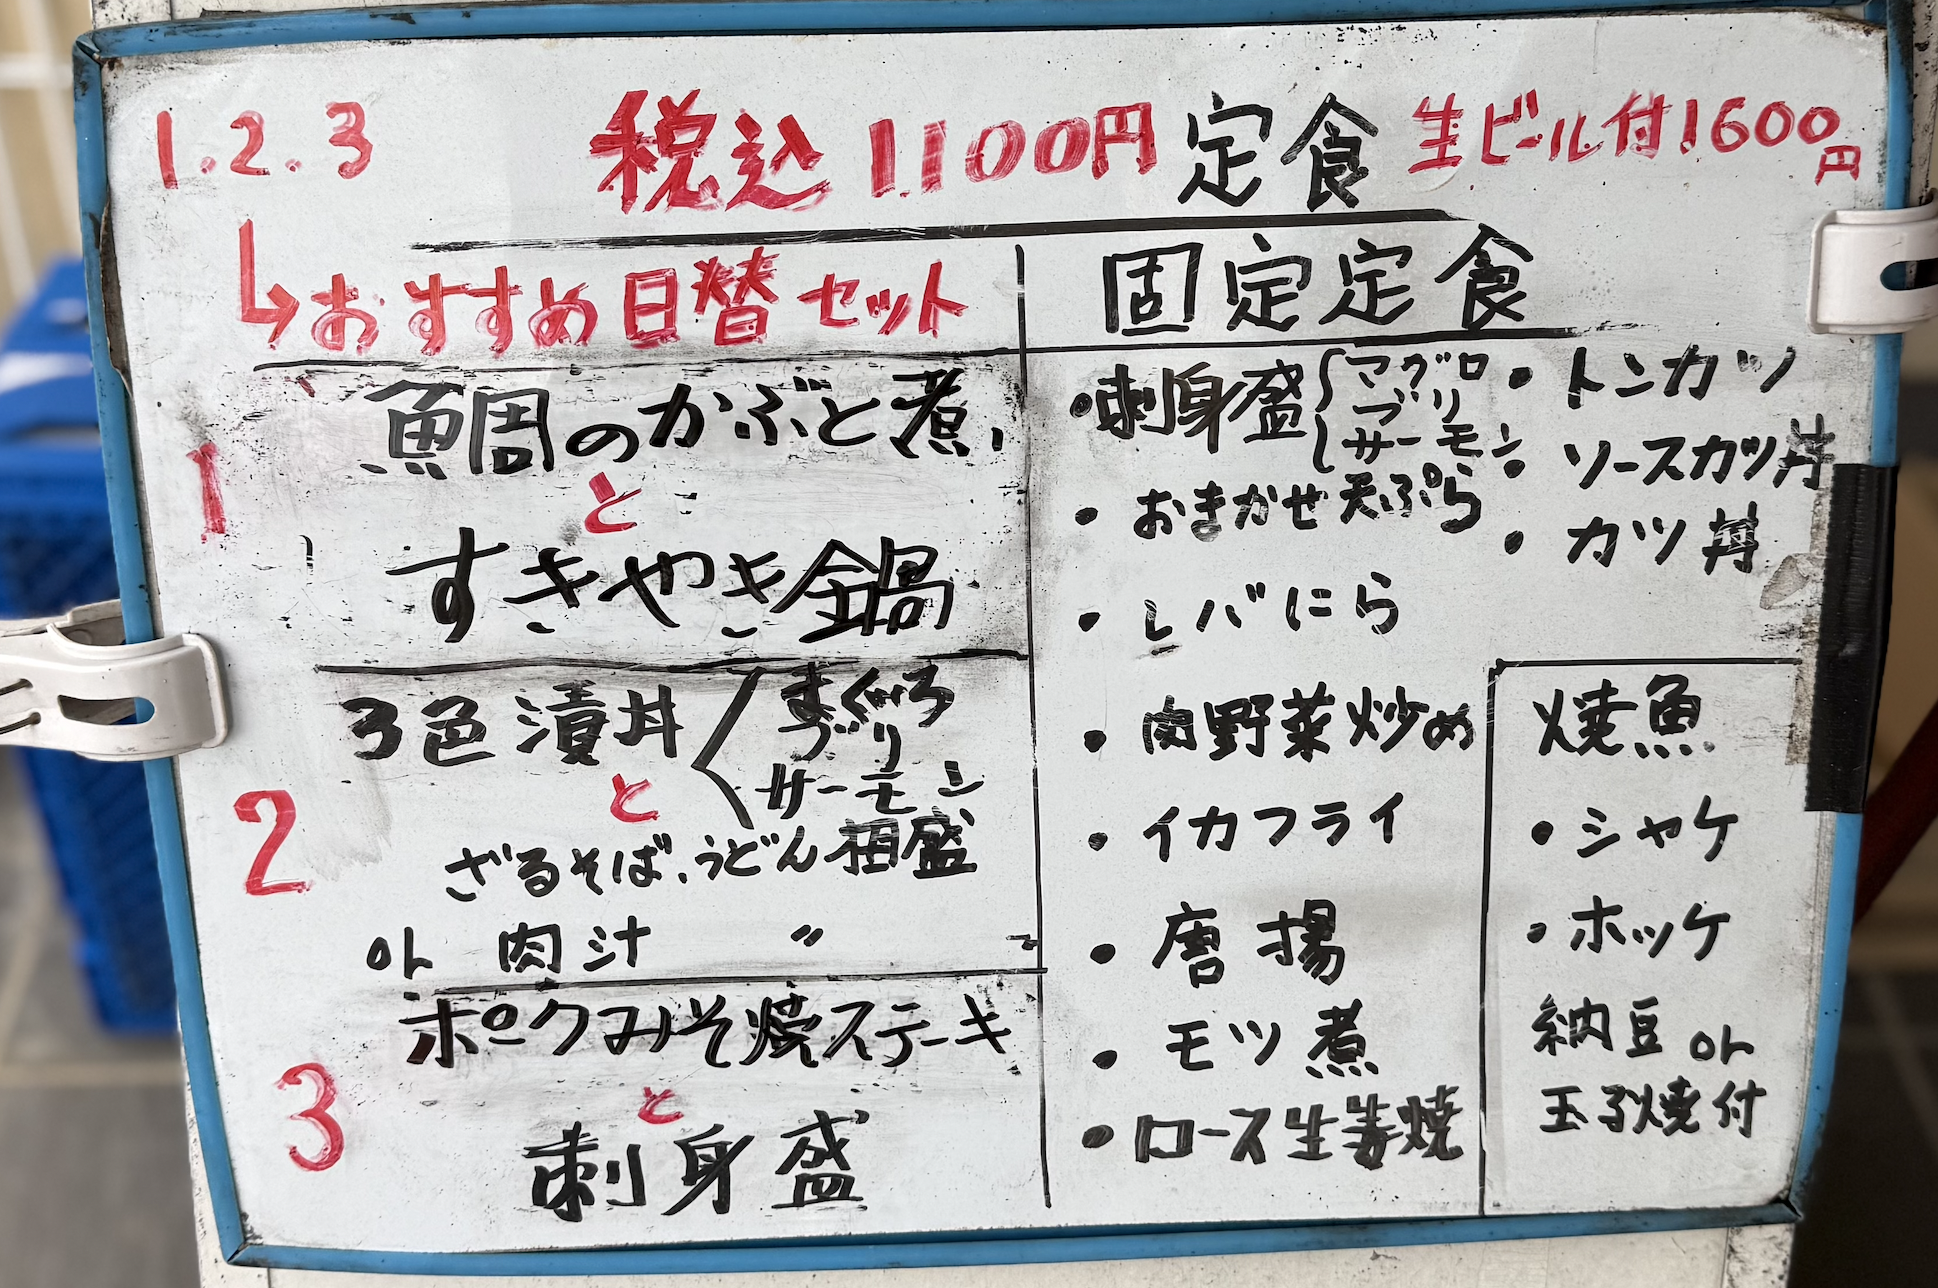 1.2.3 税込 1100円 定食 生ビール付 1600円
↳おすすめ日替セット
1
鯛のかぶと煮
と
すきやき鍋
2
3色漬丼
まぐろ
ブリ
サーモン
と
ざるそば、うどん相盛
or 肉汁 〃
3
ポークみそ焼ステーキ
と
刺身盛
固定定食
・刺身盛
マグロ
ブリ
サーモン
・おまかせ天ぷら
・レバにら
・肉野菜炒め
・イカフライ
・唐揚
・モツ煮
・ロース生姜焼
・トンカツ
・ソースカツ丼
・カツ丼
焼魚
・シャケ
・ホッケ
納豆 or
玉子焼付